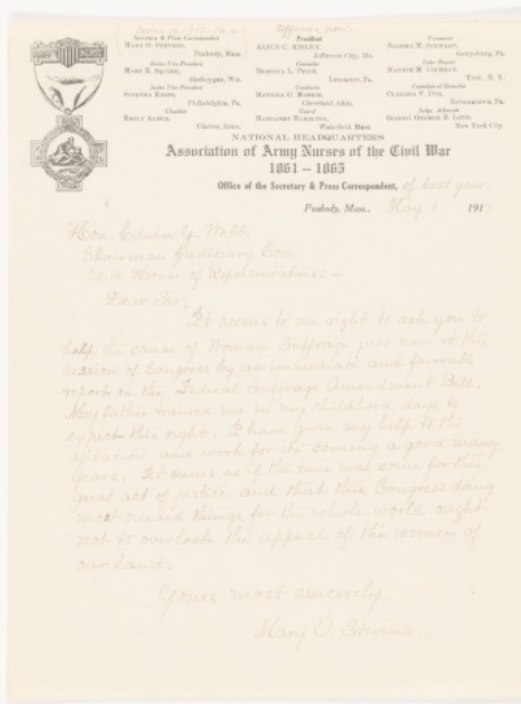 Officers now.
Secretary & Press Correspondent
MARY O. STEVENS,
Peabody, Mass.
Senior Vice President
MARY E. SQUIRE,
Sheboygan, Wis.
Junior Vice President
Philadelphia, Pa.
Chaplain
EMILY ALDER,
Clarion, Iowa.
President
ALICE C. RISLEY,
Jefferson City, Mo.
Counselor
REBECCA L. PRICE,
Lancaster, Pa.
Conductor
MATILDA C. MORRIS,
Cleveland, Ohio.
Guard
MARGARET HAMILTON,
Wakefield, Mass.
Treasurer
SALOME M. STEWART,
Gettysburg, Pa.
Color Bearer
Troy, N. Y.
CLARISSA F. DYE,
Germantown, Pa.
Judge Advocate
New York City.
NATIONAL HEADQUARTERS
Association of Army Nurses of the Civil War
1861 -- 1865
Office of the Secretary & Press Correspondent, of last year
Peabody, Mass., May 1 1917
Hon. Edwin Y. Webb.
Chairman Judiciary Com.
U.S. House of Representatives: -
Dear Sir,
It seems to me right to ask you to
help the cause of Woman Suffrage just now at this
session of Congress by an immediate and favorable
report on the Federal Suffrage Amendment Bill.
My father trained me in my childhood days to
expect this right. I have given my help to the
agitation and work for its coming a good many
years. It seems as if the time was come for this
great act of justice and that this Congress doing
most needed things for the whole world ought
not to overlook the appeal of the women of
our land.
Yours most sincerely.
Mary O. Stevens.